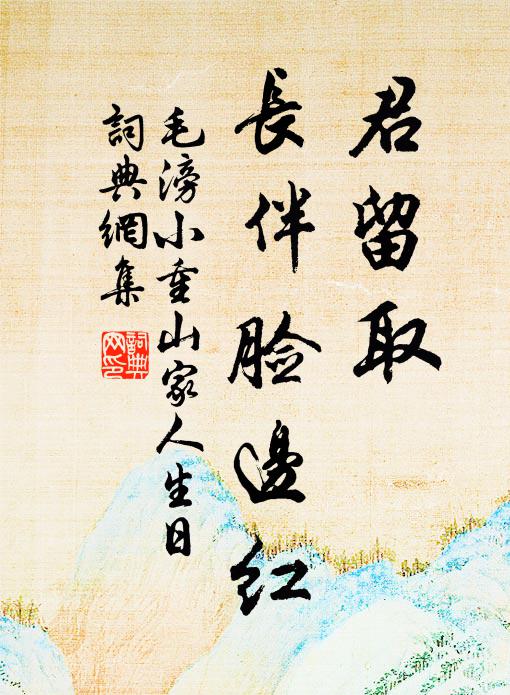 君留取
長伴臉邊紅
毛滂小重山家人生日
詞典網集
詞典网印